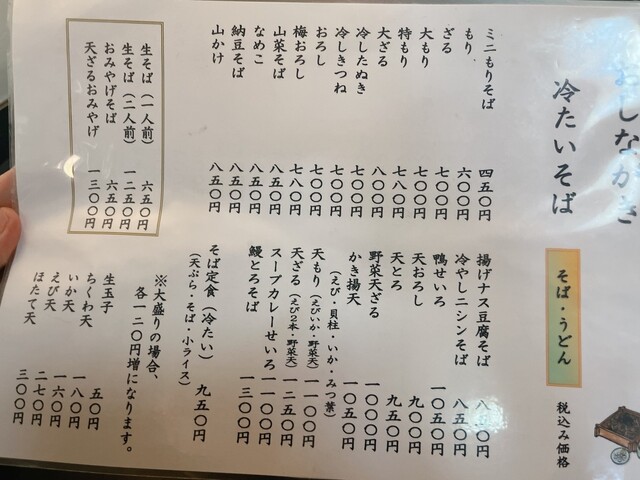 おしながき
冷たいそば
そば・うどん
税込み価格
ミニもりそば 四五〇円
もり 六〇〇円
ざる 七〇〇円
大もり 七〇〇円
特もり 七八〇円
大ざる 八〇〇円
冷したぬき 七〇〇円
冷しきつね 七〇〇円
おろし 七〇〇円
梅おろし 七八〇円
山菜そば 八五〇円
なめこ 八五〇円
納豆そば 八五〇円
山かけ 八五〇円
生そば（一人前） 六五〇円
生そば（二人前） 一二五〇円
おみやげそば 六五〇円
天ざるおみやげ 一三〇〇円
揚げナス豆腐そば 八五〇円
冷やしニシンそば 八五〇円
鴨せいろ 一〇五〇円
天おろし 九〇〇円
天とろ 九五〇円
野菜天ざる 一〇〇〇円
かき揚天 一〇五〇円
（えび・貝柱・いか・みつ葉）
天もり（えびいか・野菜天） 一一〇〇円
天ざる（えび2本・野菜天） 一二五〇円
スープカレーせいろ 一一〇〇円
鰻とろそば 一三〇〇円
そば定食（冷たい） 九五〇円
（天ぷら・そば・小ライス）
※大盛りの場合、
各一二〇円増になります。
生玉子 五〇円
ちくわ天 一八〇円
いか天 一六〇円
えび天 二七〇円
ほたて天 三〇〇円